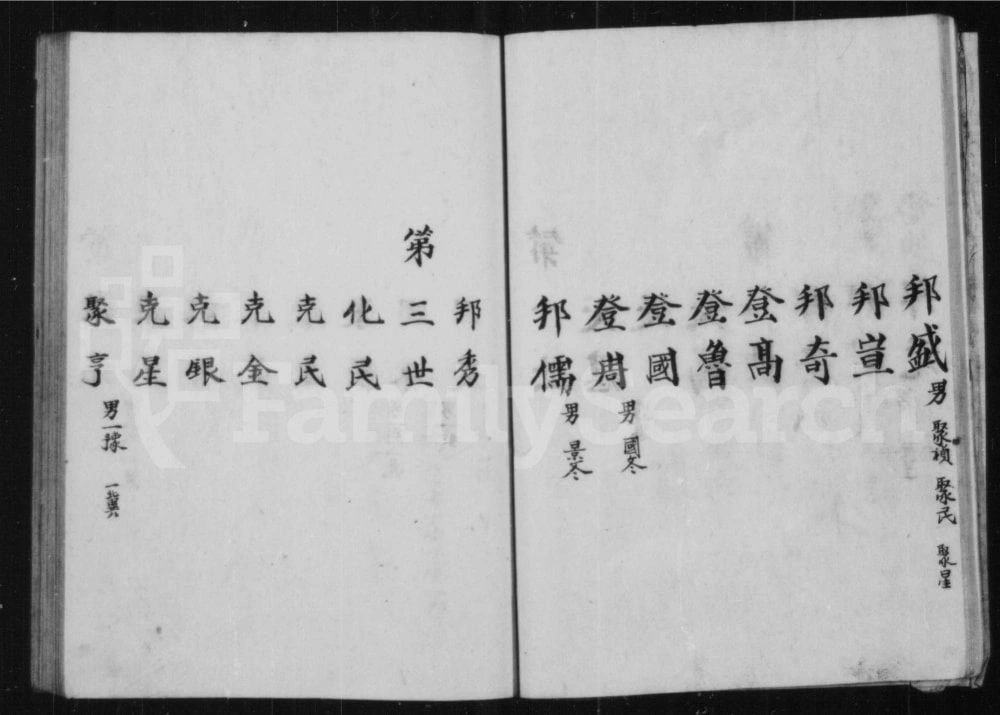 邦盛 男 聚禎 聚民 聚星
邦宣
邦奇
登高
登魯
登國
登周 男 國冬
邦儒 男 景冬
邦秀
第三世
化民
克民
克金
克銀
克星
聚亨 男 一豫 一冀
FamilySearch